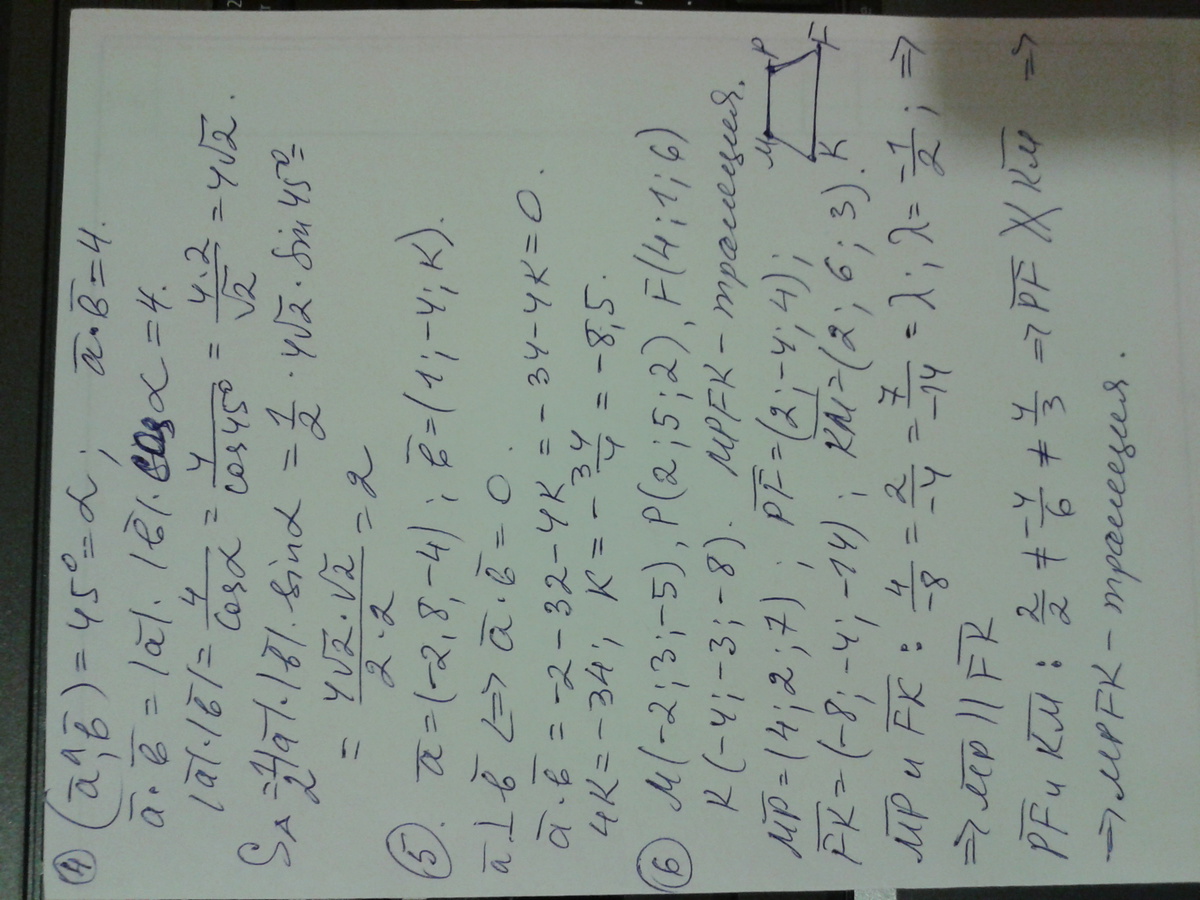 ④ (a̅^b̅) = 45° = α ; a̅·b̅ = 4.
a̅·b̅ = |a̅|·|b̅|·cosα = 4.
|a̅|·|b̅| = 4/cosα = 4/cos45° = 4·2/√2 = 4√2.
S_Δ = 1/2|a̅|·|b̅|·sinα = 1/2·4√2·sin45° =
= 4√2·√2/2·2 = 2
⑤. a̅ = (-2; 8; -4) ; b̅ = (1; -4; K).
a̅ ⊥ b̅ <=> a̅·b̅ = 0.
a̅·b̅ = -2 - 32 - 4K = -34 - 4K = 0.
4K = -34; K = -34/4 = -8,5.
⑥ M(-2; 3; -5), P(2; 5; 2), F(4; 1; 6)
K(-4; -3; -8). MPFK - трапеция.
M P
K F
M̅P̅ = (4; 2; 7) ; P̅F̅ = (2; -4; 4);
F̅K̅ = (-8; -4; -14) ; K̅M̅ = (2; 6; 3).
M̅P̅ и F̅K̅ : 4/-8 = 2/-4 = 7/-14 = λ; λ = -1/2; =>
=> M̅P̅ || F̅K̅
P̅F̅ и K̅M̅ : 2/2 ≠ -4/6 ≠ 4/3 => P̅F̅ ∦ K̅M̅ =>
=> MPFK - трапеция.